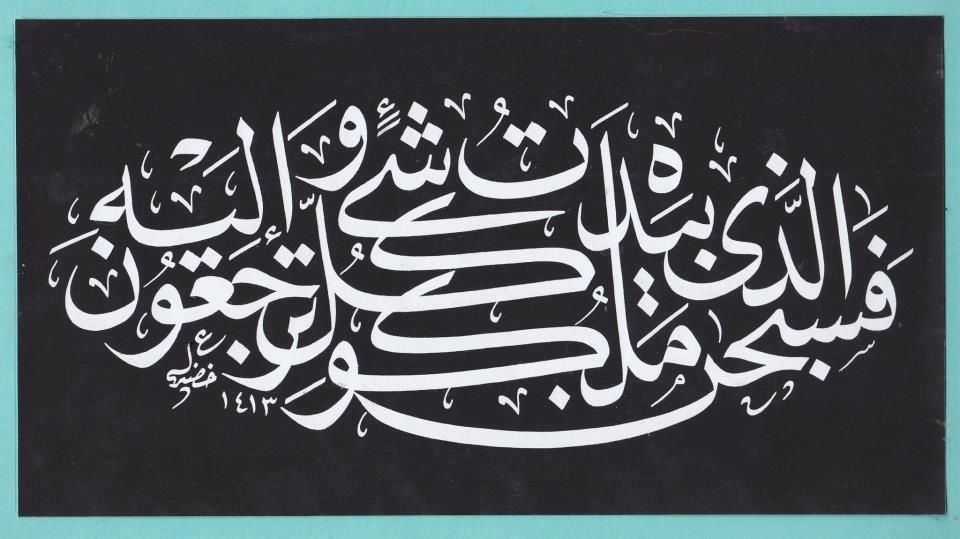 فَسُبْحٰنَ الَّذِى بِيَدِهِ مَلَكُوتُ كُلِّ شَىْءٍ وَاِلَيْهِ تُرْجَعُونَ
خضير
١٤١٣